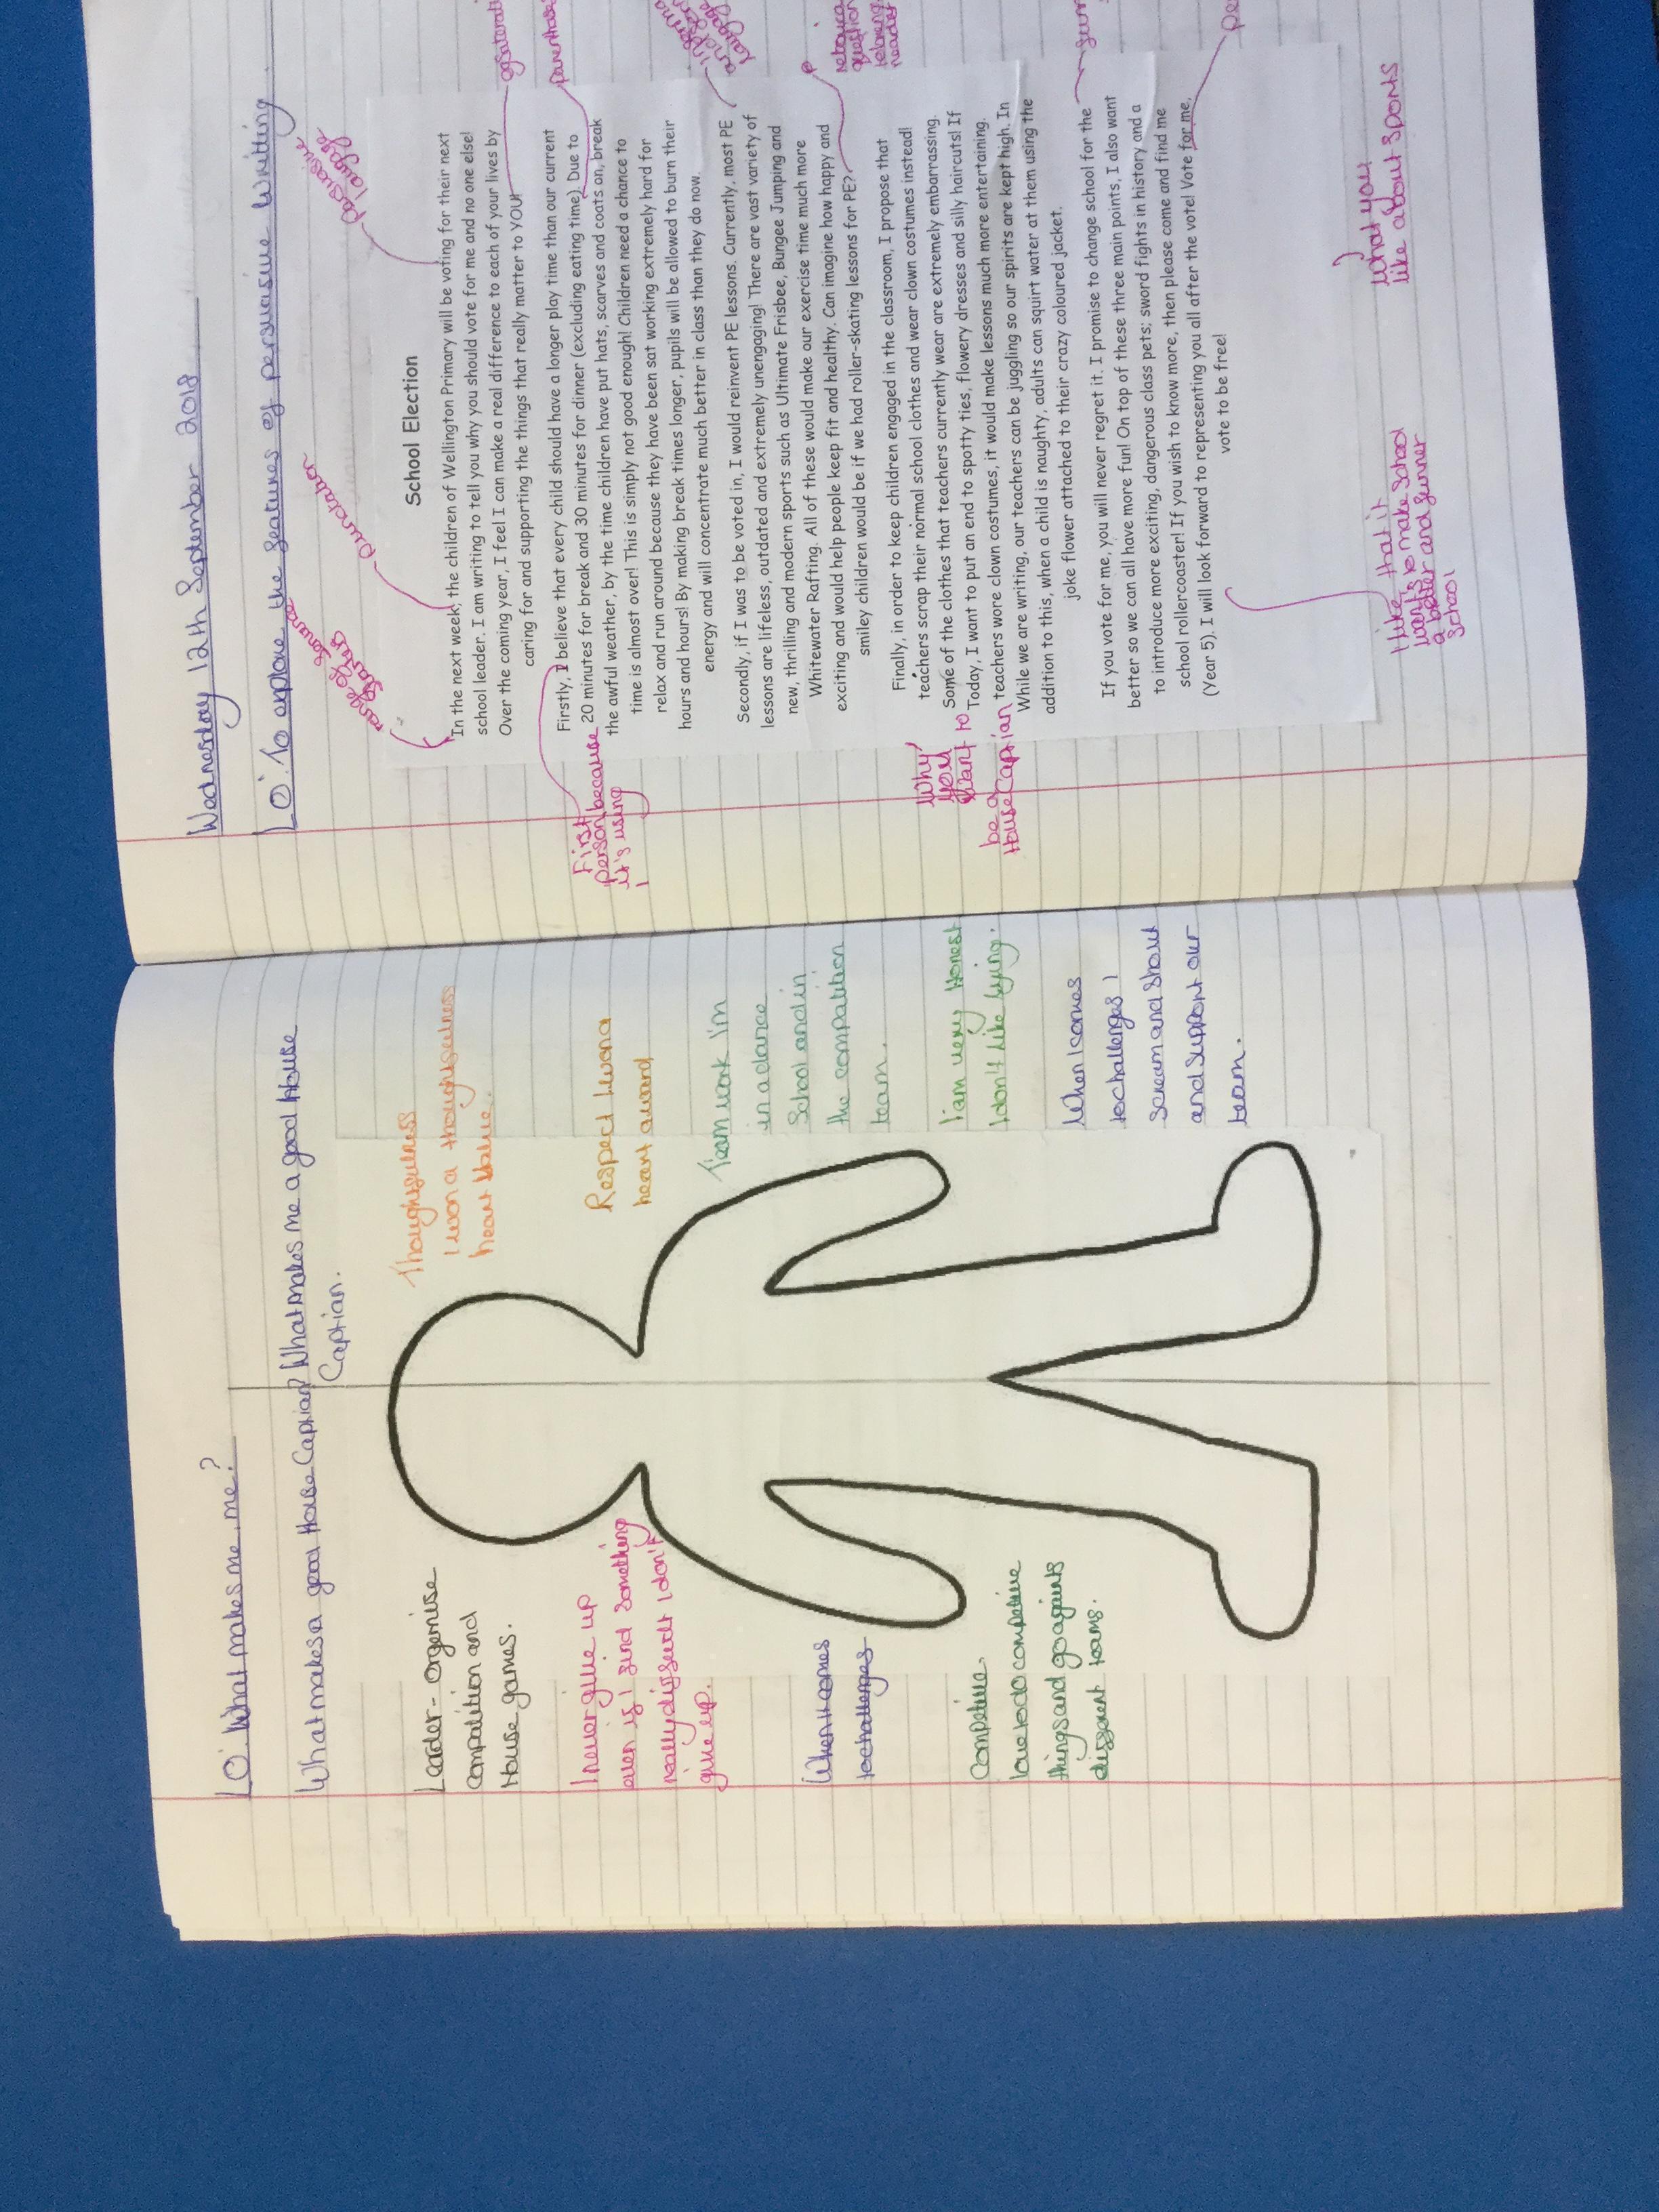 LO: What makes me, me?
What makes a good House Captian? What makes me a good House
Captian.
Leader - Organise
compatition and
House games.
I never give up
even if I find something
really difficult I don't
give up.
When it comes
to challenges
Competive.
love to do competive
things and go againts
different teams.
Thoughtfulness
I won a thoughtfulness
heart value.
Respect I won a
heart award
Team work I'm
in a dance
School and in
the compatition
team.
I am very Honest
I don't like lying.
When I comes
to challenges I
scream and shout
and support our
team.
Wednesday 12th September 2018
LO: To explore the features of persuasive writing
range of
persuasive
language
School Election
In the next week, the children of Wellington Primary will be voting for their next
school leader. I am writing to tell you why you should vote for me and no one else!
Over the coming year, I feel I can make a real difference to each of your lives by
caring for and supporting the things that really matter to YOU!
Firstly, I believe that every child should have a longer play time than our current
20 minutes for break and 30 minutes for dinner (excluding eating time). Due to
the awful weather, by the time children have put hats, scarves and coats on, break
time is almost over! This is simply not good enough! Children need a chance to
relax and run around because they have been sat working extremely hard for
hours and hours! By making break times longer, pupils will be allowed to burn their
energy and will concentrate much better in class than they do now.
Secondly, if I was to be voted in, I would reinvent PE lessons. Currently, most PE
lessons are lifeless, outdated and extremely unengaging! There are vast variety of
new, thrilling and modern sports such as Ultimate Frisbee, Bungee Jumping and
Whitewater Rafting. All of these would make our exercise time much more
exciting and would help people keep fit and healthy. Can imagine how happy and
smiley children would be if we had roller-skating lessons for PE?
Finally, in order to keep children engaged in the classroom, I propose that
teachers scrap their normal school clothes and wear clown costumes instead!
Some of the clothes that teachers currently wear are extremely embarrassing.
Today, I want to put an end to spotty ties, flowery dresses and silly haircuts! If
teachers wore clown costumes, it would make lessons much more entertaining.
While we are writing, our teachers can be juggling so our spirits are kept high. In
addition to this, when a child is naughty, adults can squirt water at them using the
joke flower attached to their crazy coloured jacket.
If you vote for me, you will never regret it. I promise to change school for the
better so we can all have more fun! On top of these three main points, I also want
to introduce more exciting, dangerous class pets; sword fights in history and a
school rollercoaster! If you wish to know more, then please come and find me
(Year 5). I will look forward to representing you all after the vote! Vote for me,
vote to be free!
First
person because
it's using
I
Why
you
want to
be a
House Captian
rhetorical
question
I like that it
wants to make school
a better and funner
school
what you
like about sports